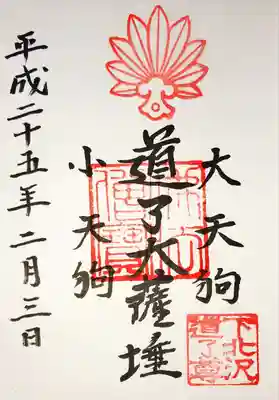 大天狗
道了大薩埵
小天狗
平成二十五年二月三日
下北沢
道了尊